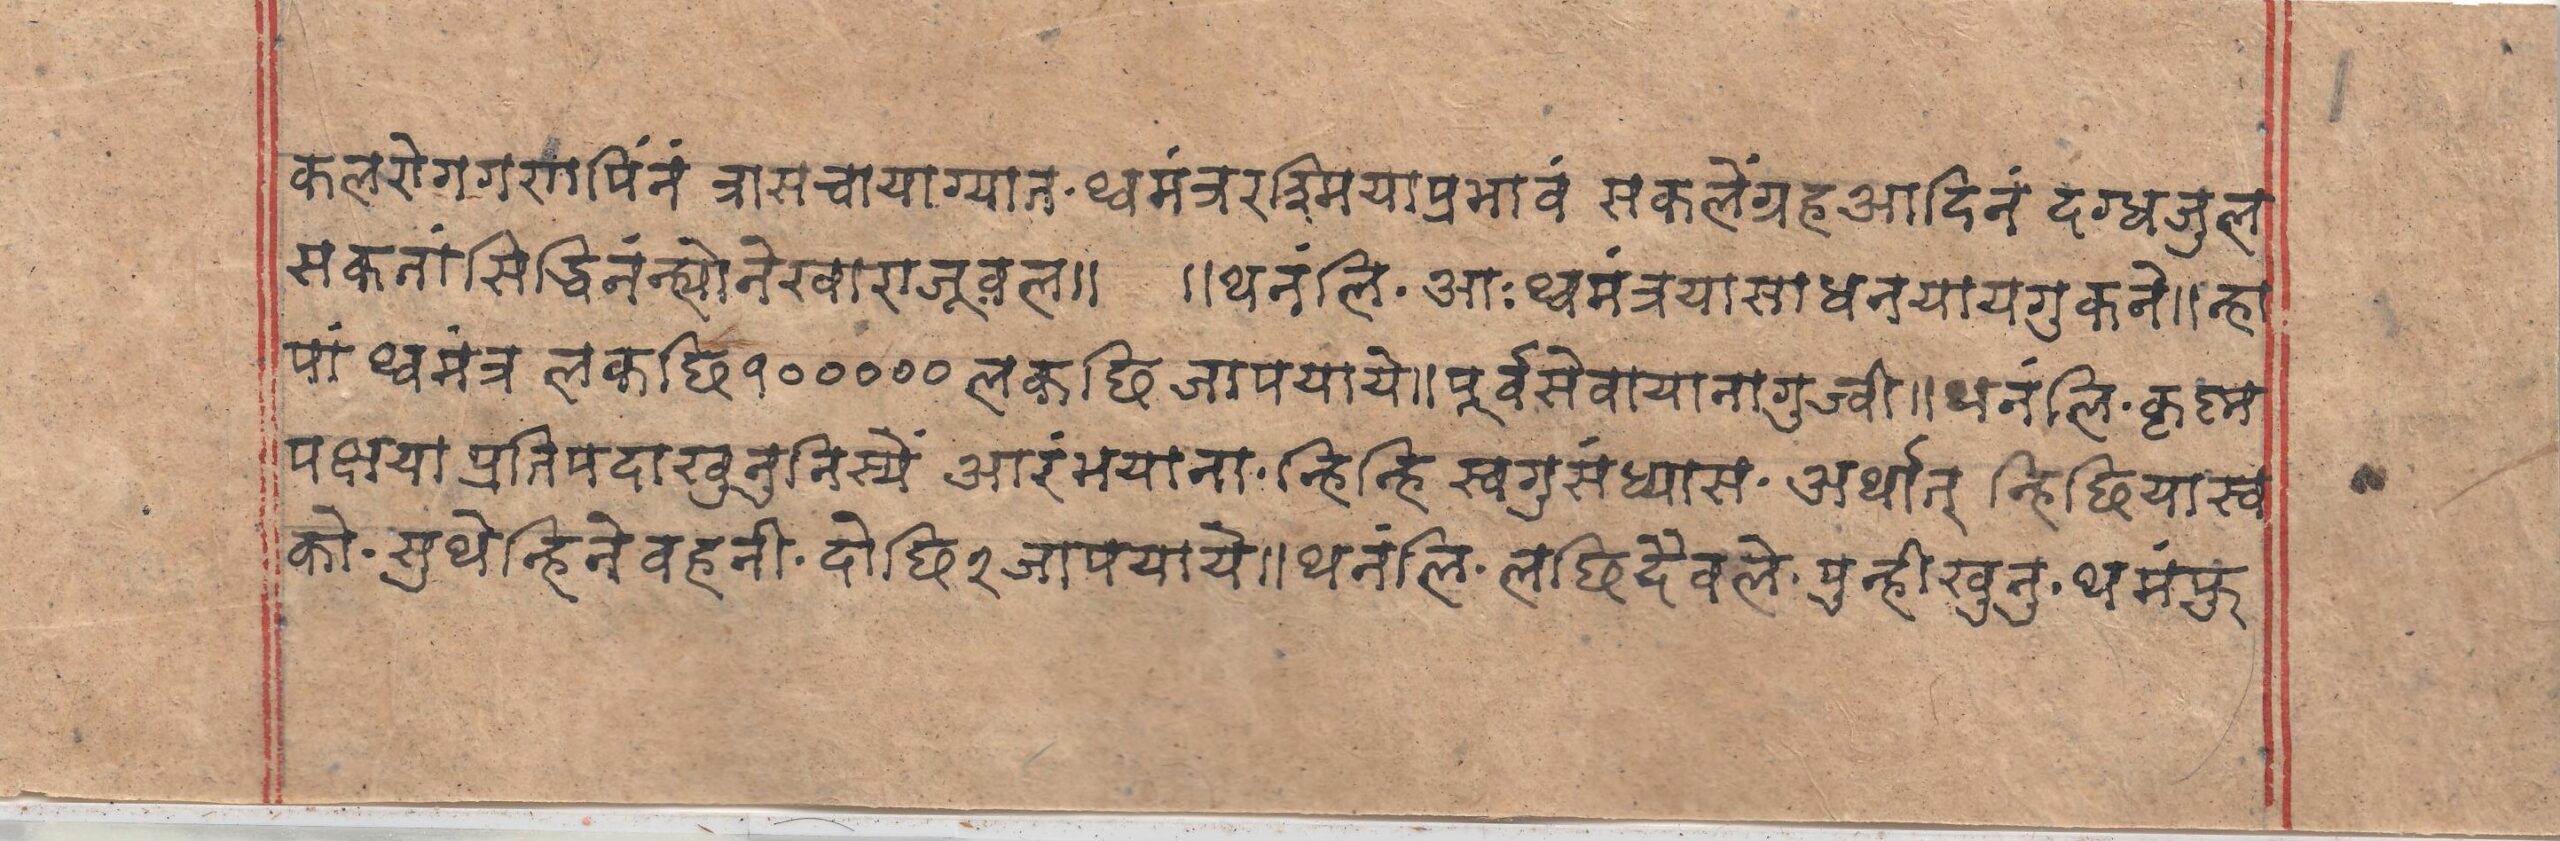 कलरोगगरापिंनं त्रासचायाग्यात. थ्वमंत्ररश्मियाप्रभावं सकलेंग्रहआदिनं दग्धजुल
सकतां सिद्धिनंन्ह्योनेरवाराजूवल॥ ॥थनंलि. आः थ्वमंत्रयासाधनयायगुकने॥न्हा
पां थ्वमंत्र लकछि १००००० लकछि जापयाये॥पूर्वसेवायानागुज्वी॥थनंलि. कृष्ण
पक्षया प्रतिपदाखुनुनिस्यें आरंभयाना. न्हिन्हि स्वगुसंध्यास. अर्थात् न्हिछियास्व
को. सुथेन्हिनेवहनी. दोछि१जापयाये॥थनंलि. लछिदैवले. पुन्हीखुनु. थमंफु